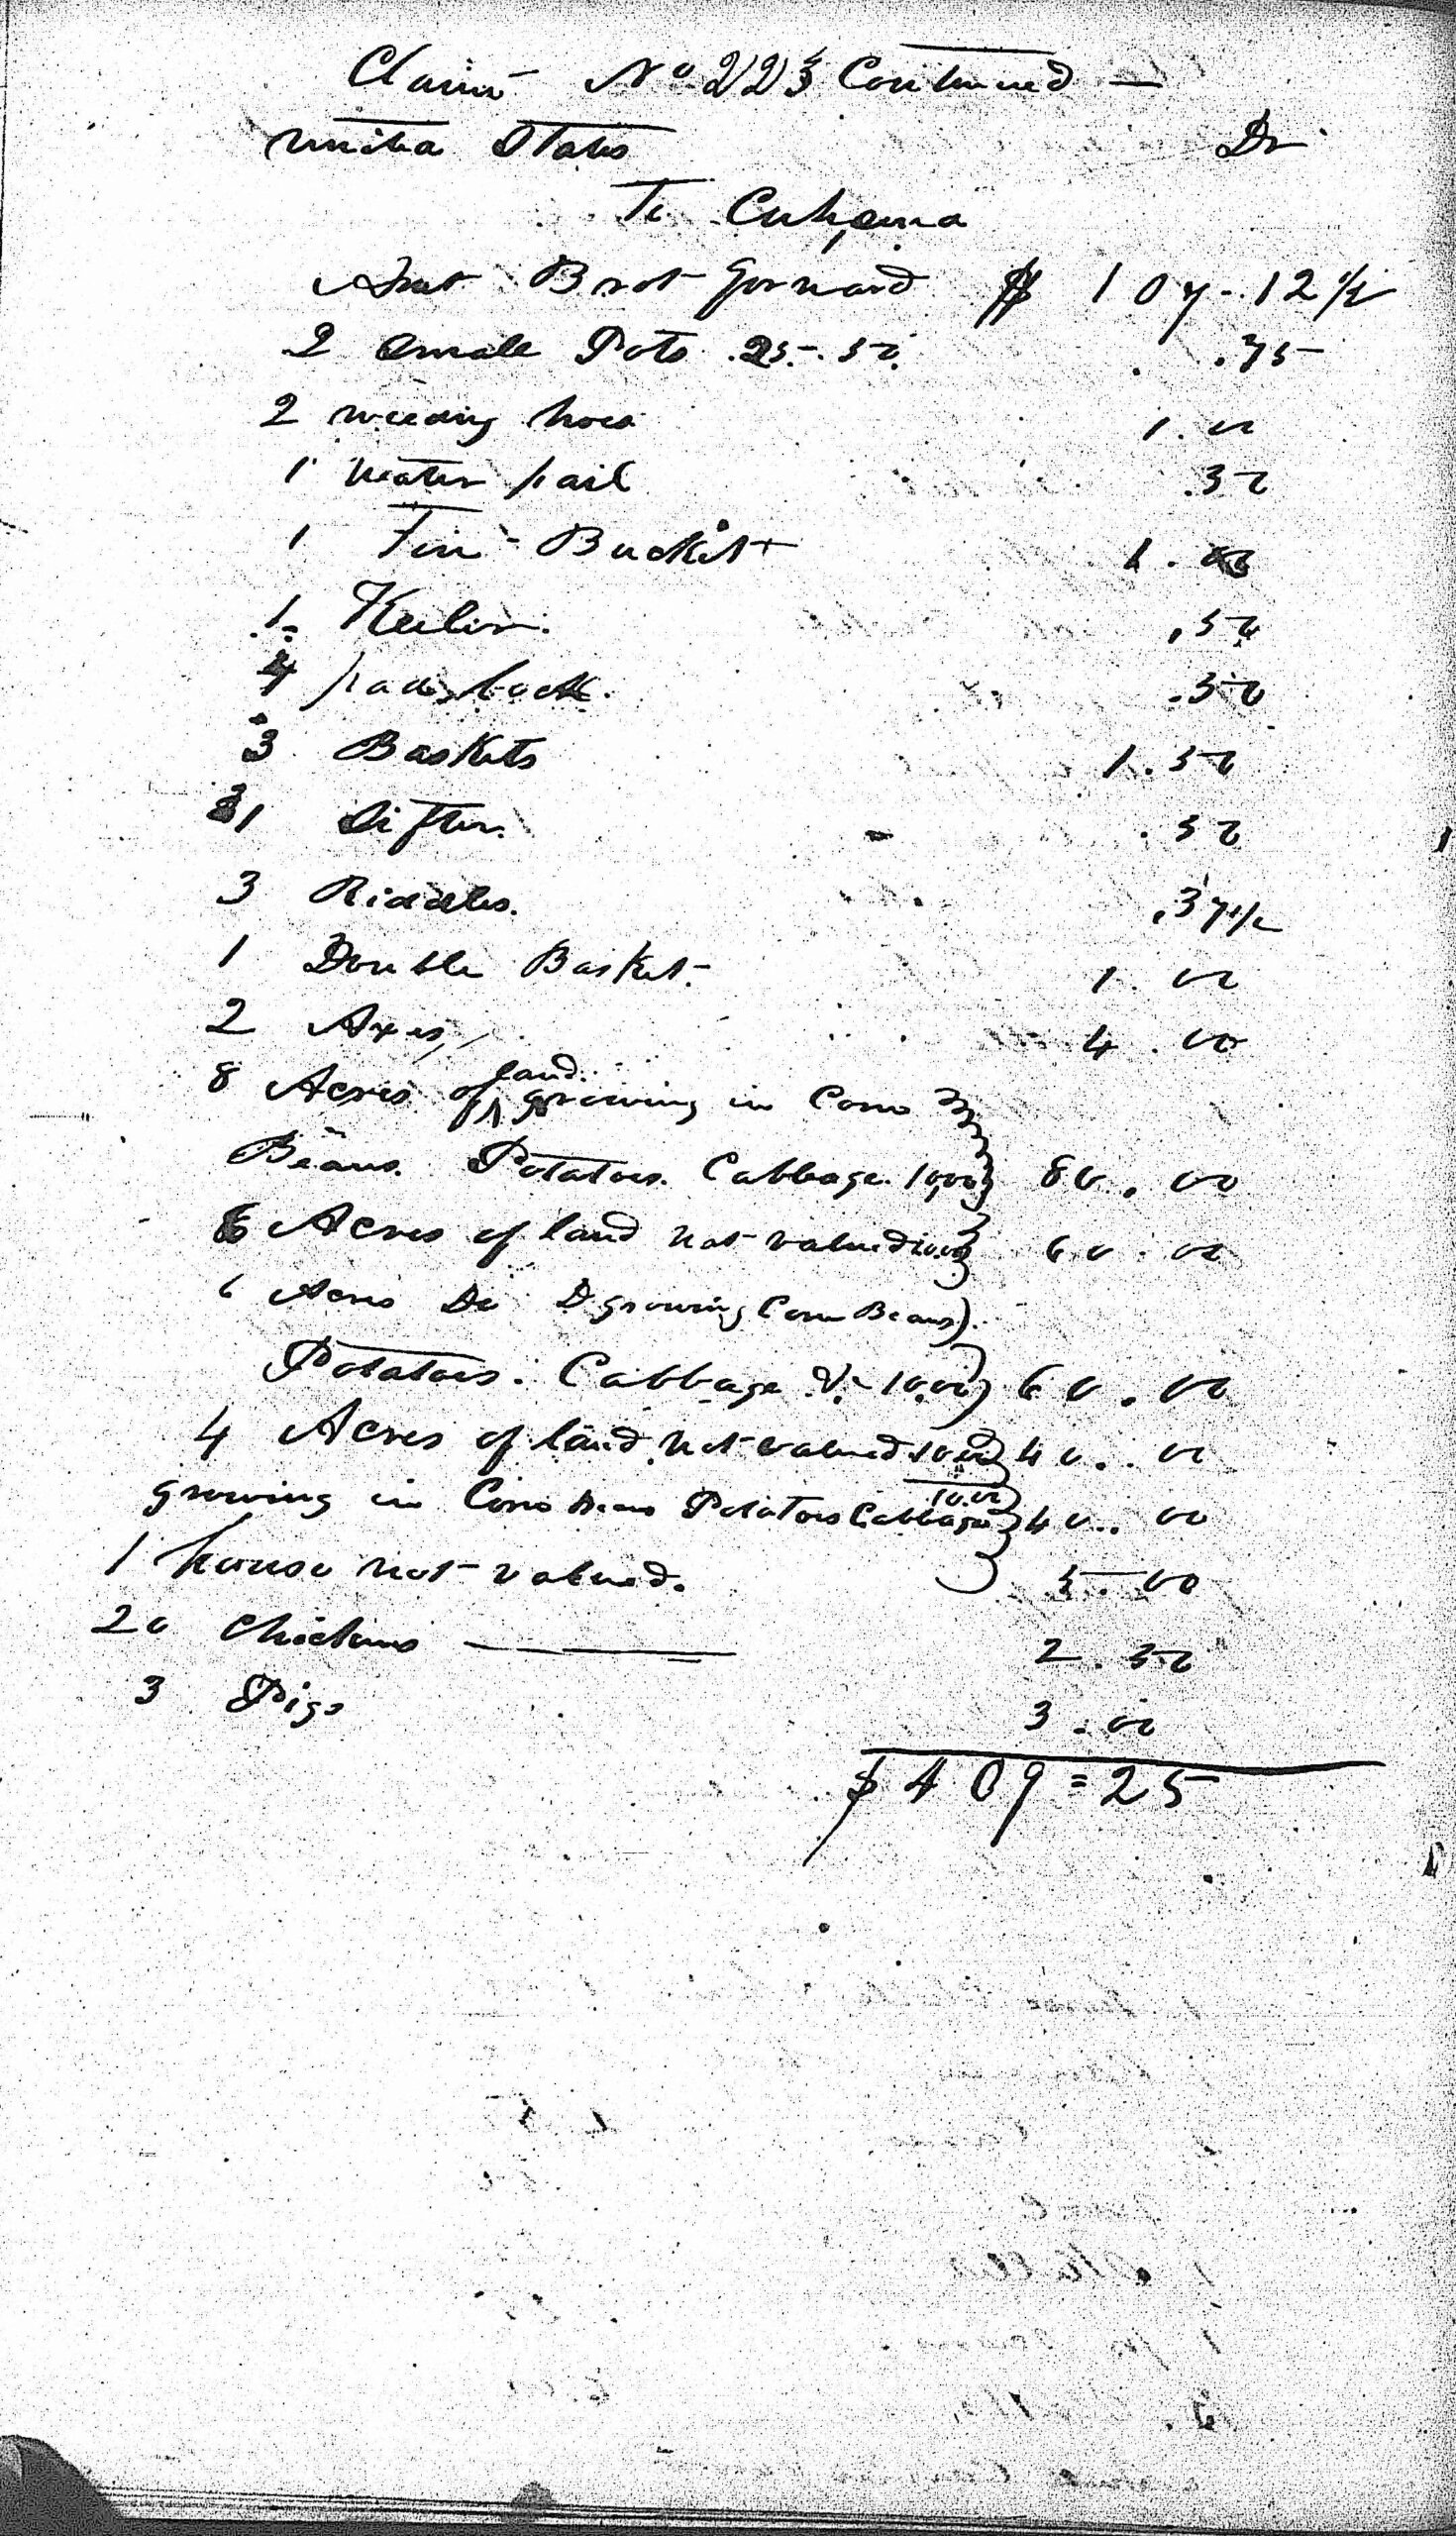 Claim No 223 Continued —
United States Dr
To
Amt Brot forward $ 107.12 1/2
2 Small Pots .25. 50. .75
2 weeding hoes 1.00
1 water pail .50
1 Tin Bucket 1.00
1 Keeler. .50
pad lock. .50
3 Baskets 1.50
1 Sifter. .50
3 Riddles. .37 1/2
1 Double Basket. 1.00
2 Axes, 4.00
8 Acres of land growing in Corn
Beans. Potatoes. Cabbage. 10,00 80.00
6 Acres of land not valued 10.00 60.00
6 Acres Do growing Corn Beans
Potatoes. Cabbage &c 10.00 60.00
4 Acres of land not valued 10.00 40.00
growing in Corn Beans Potatoes Cabbage 10.00 40.00
1 house not valued. 5.00
20 Chickens — 2.50
3 Pigs 3.00
$409=25